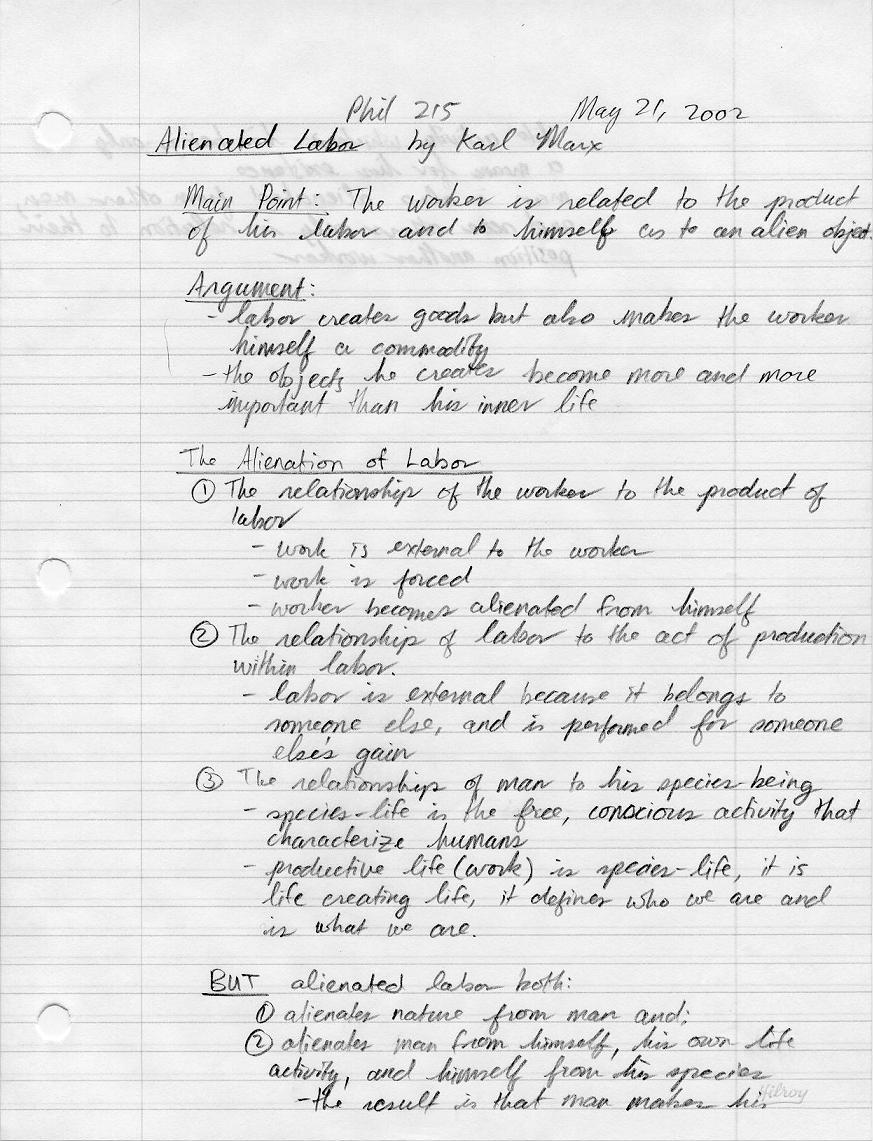 Phil 215 May 21, 2002
Alienated Labor by Karl Marx
Main Point: The worker is related to the product
of his labor and to himself as to an alien object.
Argument:
- labor creates goods but also makes the worker
himself a commodity
- the objects he creates become more and more
important than his inner life
The Alienation of Labor
① The relationship of the worker to the product of
labor
- work is external to the worker
- work is forced
- worker becomes alienated from himself
② The relationship of labor to the act of production
within labor.
- labor is external because it belongs to
someone else, and is performed for someone
else's gain
③ The relationships of man to his species-being
- species-life is the free, conscious activity that
characterize humans
- productive life (work) is species-life, it is
life creating life, it defines who we are and
is what we are.
BUT alienated labor both:
① alienates nature from man and;
② alienates man from himself, his own life
activity, and himself from his species
- the result is that man makes his
Hilroy